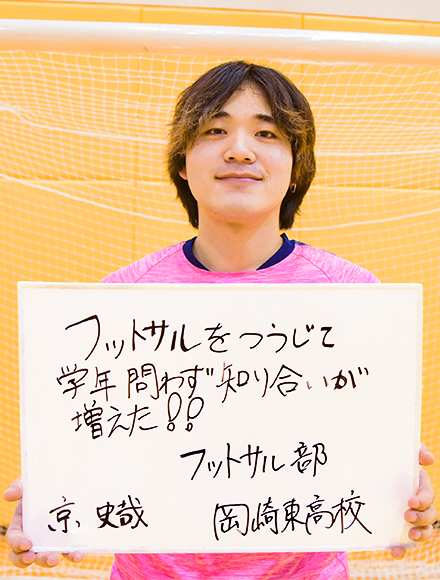 フットサルをつうじて
学年問わず知り合いが
増えた!!
フットサル部
京 史哉 岡崎東高校